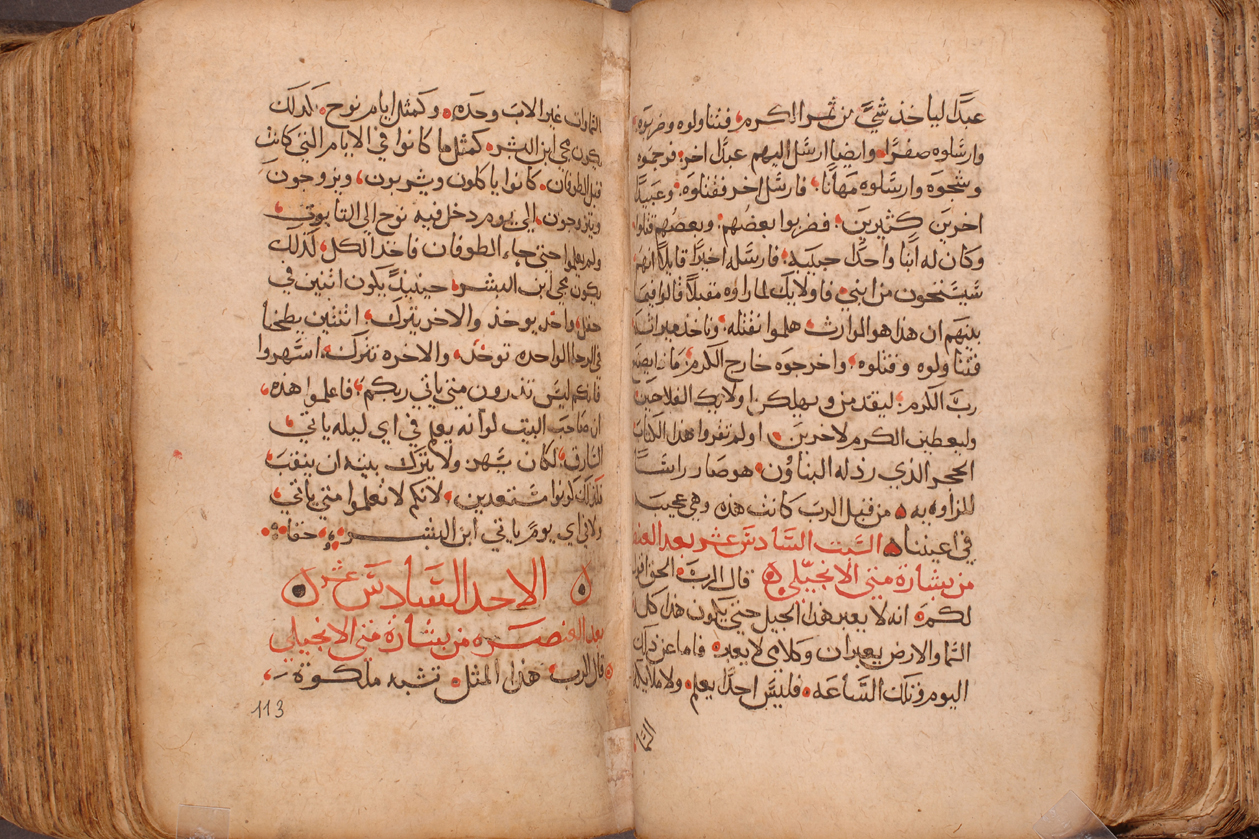 عبدًا لياخذ شيًّ من ثمر الكرم فتناولوه وضربوه
وارسلوه صفرًا وايضا ارسل اليهم عبدًا اخر فرجموه
وشجوه وارسلوه مهانًا فارسل اخر فقتلوه وعبيدًا
اخرين كثيرين فضربوا بعضهم وبعضهم قتلوا
وكان له ابنًا واحدًا حبيبه فارسله اخيرًا قايلًا انهم
سيستحون من ابني فاوليك لما راوه مقبلًا قالوا فيما
بينهم ان هذا هو الوارث هلموا نقتله وناخذ ميراثه
فتناولوه وقتلوه واخرجوه خارج الكرم ماذا يصنع
ربّ الكرم ليقدمن ويهلكن اوليك الفلاحين
وليعطين الكرم لاخرين او لم تقروا هذا الكتاب
الحجر الذي رذله البناوُن هو صار راسًا
للزاويه من قبل الربّ كانت هذه وهي عجيبه
في اعيننا السبت السادس عشر بعد العنصره
من بشارة متي الانجيلي قال الربّ الحق اقول
لكم انه لا يعبر هذا الجيل حتي يكون هذا كله
السما والارض يعبران وكلامي لا يعبر فاما عن ذلك
اليوم وتلك الساعه فليس احدًا يعلم ولا ملايكة
السما
السماوات غير الاب وحده وكمثل ايام نوح كذلك
يكون مجي ابن البشر كمثل ما كانوا في الايام التي كانت
قبل الطوفان كانوا ياكلون ويشربون ويزوجون
ويتزوجون الي يوم دخل فيه نوح الي التابوت
ولم يعلموا حتي جاء الطوفان فاخذ الكل كذلك
يكون مجي ابن البشر حينيذٍ يكون اثنين في
حقل واحد يوخذ والاخر يترك اثنتين يطحنا
في الرحا الواحده توخذ والاخره تترك اسهروا
فانكم ليس تدرون متي ياتي ربكم فاعلموا هذه
ان صاحب البيت لو انه يعلم في اي ليله ياتي
السارق لكان سهر ولا يترك بيته ان ينقب
فلذلك كونوا مستعدين لانكم لا تعلموا متي ياتي
ولا في اي يومٍ ياتي ابن البشر حقا
الاحد السادس عشر
بعد العنصره من بشارة متي الانجيلي
قال الرب هذا المثل تشبه ملكوة
113